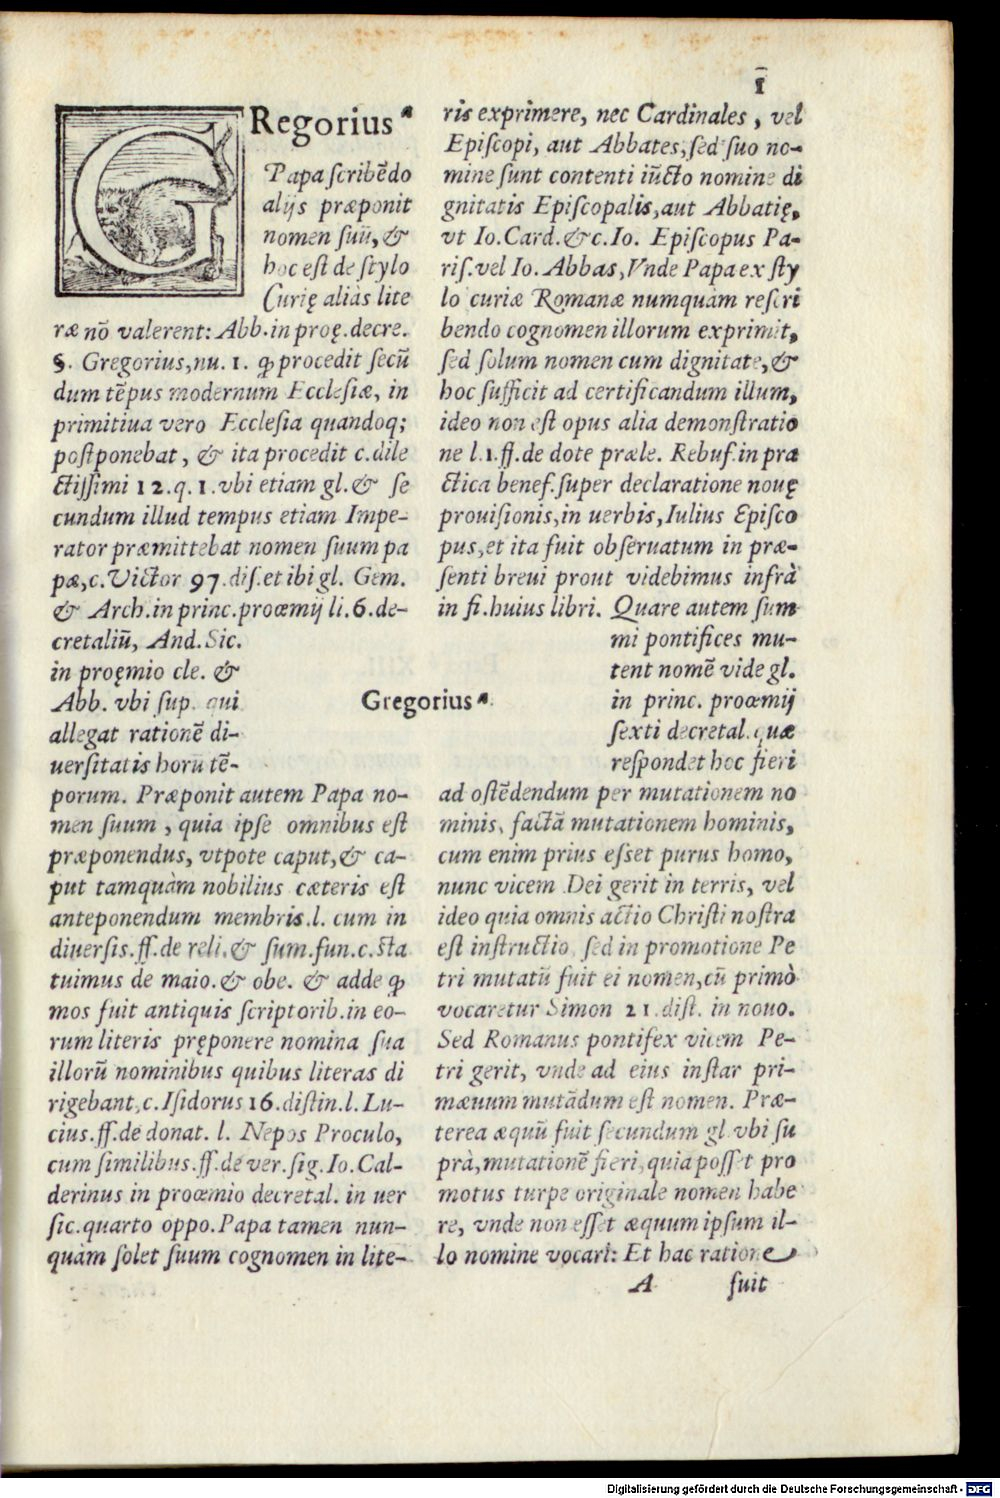 ī
GRegorius
Papa ſcribẽdo
alijs præponit
nomen ſuũ, &
hoc eſt de ſtylo
Curię aliàs lite
ræ nõ valerent: Abb. in proę. decre.
§. Gregorius, nu. 1. ꝙ procedit ſecũ
dum tẽpus modernum Eccleſiæ, in
primitiua vero Eccleſia quandoq;
poſtponebat, & ita procedit c. dile
ctiſſimi 12. q. 1. vbi etiam gl. & ſe
cundum illud tempus etiam Impe-
rator præmittebat nomen ſuum pa
pæ, c. Victor 97. diſ. et ibi gl. Gem.
& Arch. in princ. proœmij li. 6. de-
cretaliũ, And. Sic.
in proęmio cle. &
Abb. vbi ſup. qui
allegat rationẽ di-
uerſitatis horũ tẽ-
porum. Præponit autem Papa no-
men ſuum, quia ipſe omnibus eſt
præponendus, vtpote caput, & ca-
put tamquàm nobilius cæteris eſt
anteponendum membris. l. cum in
diuerſis. ff. de reli. & ſum. fun. c. ſta
tuimus de maio. & obe. & adde ꝙ
mos fuit antiquis ſcriptorib. in eo-
rum literis pręponere nomina ſua
illorũ nominibus quibus literas di
rigebant, c. Iſidorus 16. diſtin. l. Lu-
cius. ff. de donat. l. Nepos Proculo,
cum ſimilibus. ff. de ver. ſig. Io. Cal-
derinus in proœmio decretal. in uer
ſic. quarto oppo. Papa tamen nun-
quàm ſolet ſuum cognomen in lite-
Gregorius
ris exprimere, nec Cardinales, vel
Epiſcopi, aut Abbates, ſed ſuo no-
mine ſunt contenti iũcto nomine di
gnitatis Epiſcopalis, aut Abbatię,
vt Io. Card. &c. Io. Epiſcopus Pa-
riſ. vel Io. Abbas, Vnde Papa ex ſty
lo curiæ Romanæ numquàm reſcri
bendo cognomen illorum exprimit,
ſed ſolum nomen cum dignitate, &
hoc ſufficit ad certificandum illum,
ideo non eſt opus alia demonſtratio
ne l. 1. ff. de dote præle. Rebuf. in pra
ctica benef. ſuper declaratione nouę
prouiſionis, in uerbis, Iulius Epiſco
pus, et ita fuit obſeruatum in præ-
ſenti breui prout videbimus infrà
in fi. huius libri. Quare autem ſum
mi pontifices mu-
tent nomẽ vide gl.
in princ. proœmij
ſexti decretal. quæ
reſpondet hoc fieri
ad oſtẽdendum per mutationem no
minis, factã mutationem hominis,
cum enim prius eſſet purus homo,
nunc vicem Dei gerit in terris, vel
ideo quia omnis actio Chriſti noſtra
eſt inſtructio, ſed in promotione Pe
tri mutatũ fuit ei nomen, cũ primò
vocaretur Simon 21. diſt. in nouo.
Sed Romanus pontifex vicem Pe-
tri gerit, vnde ad eius inſtar pri-
mæuum mutãdum eſt nomen. Præ-
terea æquũ fuit ſecundum gl. vbi ſu
prà, mutationẽ fieri, quia poſſet pro
motus turpe originale nomen habe
re, vnde non eſſet æquum ipſum il-
lo nomine vocari: Et hac ratione
A fuit
Digitalisierung gefördert durch die Deutsche Forschungsgemeinschaft - DFG